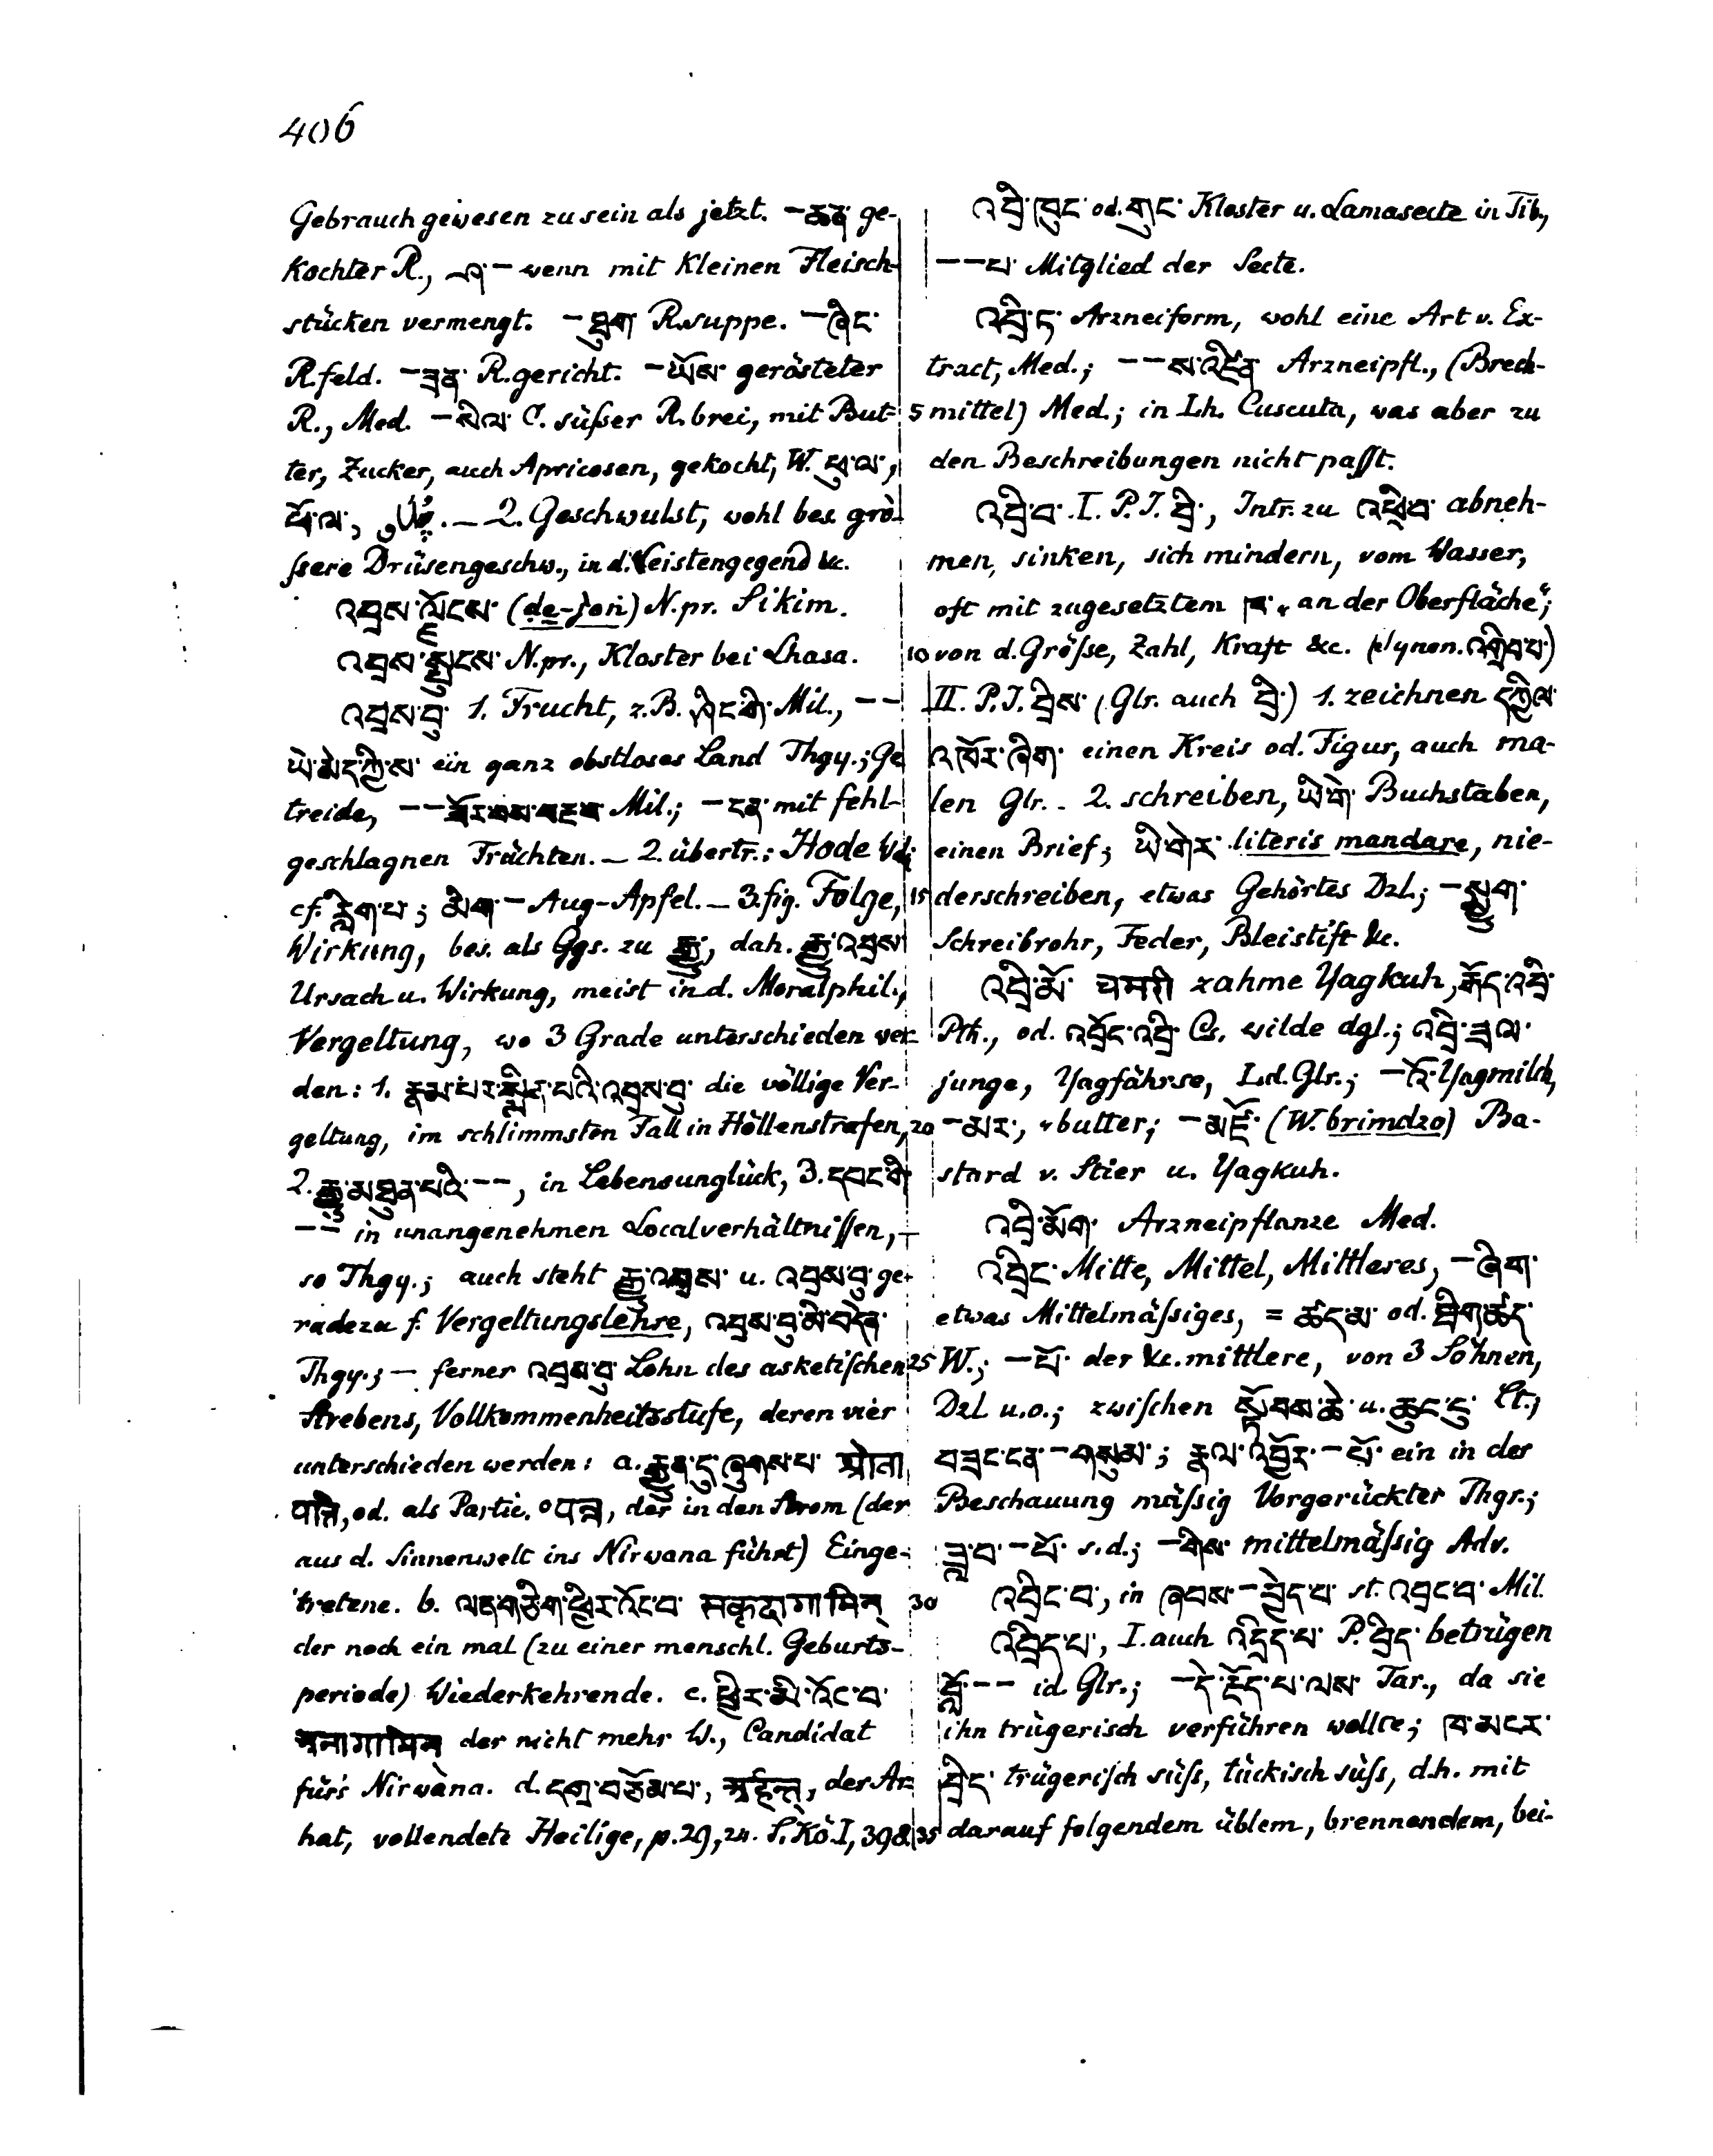 406
Gebrauch gewesen zu sein als jetzt. — ཆན་ ge-
kochter R., ཤ་ — wenn mit kleinen Fleisch-
stücken vermengt. — ཐུག་ R.suppe. — ཞིང་
R.feld. — ཟན་ R.gericht. — ཡོས་ gerösteter
R., Med. — སིལ་ C. süßer R.brei, mit But-
ter, Zucker, auch Apricosen, gekocht, W. ཕུ་ལ་,
ཕོ་ལ་, . — 2. Geschwulst, wohl bes. grö-
ssere Drüsengeschw., in d. Leistengegend &c.
འབྲས་ལྗོངས་ (de-jon) N.pr. Sikim.
འབྲས་སྤུངས་ N.pr., Kloster bei Lhasa.
འབྲས་བུ་ 1. Frucht, z.B. ཤིང་གི་ Mil., — —
ཡེ་མེད་ཀྱི་ས་ ein ganz obstloses Land Thgy.; Ge
treide, — — Mil.; — ངན་ mit fehl-
geschlagnen Früchten. — 2. übertr.: Hode Wd;
cf. རླིག་པ་; མིག་ — Aug-Apfel. — 3. fig. Folge,
Wirkung, bes. als Ggs. zu རྒྱུ་, dah. རྒྱུ་འབྲས་
Ursach u. Wirkung, meist in d. Moralphil.,
Vergeltung, wo 3 Grade unterschieden wer-
den: 1. རྣམ་པར་སྨིན་པའི་འབྲས་བུ་ die völlige Ver-
geltung, im schlimmsten Fall in Höllenstrafen,
2. རྒྱུ་མཐུན་པའི་ — —, in Lebensunglück, 3. དབང་གི་
— — in unangenehmen Localverhältnissen, —
so Thgy.; auch steht རྒྱུ་འབྲས་ u. འབྲས་བུ་ ge-
radezu f. Vergeltungslehre, འབྲས་བུ་མི་བདེན་
Thgy.; — ferner འབྲས་བུ་ Lohn des asketischen
Strebens, Vollkommenheitsstufe, deren vier
unterschieden werden: a. རྒྱུན་དུ་ཞུགས་པ་ श्रोता
पत्ति, od. als Partic. °पन्न, der in den Strom (der
aus d. Sinnenwelt ins Nirwana führt) Einge-
tretene. b. ལན་གཅིག་ཕྱིར་འོང་བ་ सकृदागामिन्
der noch ein mal (zu einer menschl. Geburts-
periode) Wiederkehrende. c. ཕྱིར་མི་འོང་བ་
अनागामिन् der nicht mehr W., Candidat
fürs Nirwana. d. དགྲ་བཅོམ་པ་, अर्हन्त्, der Ar-
hat, vollendete Heilige, p. 29, 24. S. Kö. I, 398.
འབྲི་ཁུང་ od. གུང་ Kloster u. Lamasecte in Tib.,
— — པ་ Mitglied der Secte.
འབྲི་ཏ་ Arzneiform, wohl eine Art v. Ex-
tract, Med.; — — ས་འཛིན་ Arzneipfl., (Brech-
5 mittel) Med.; in Lh. Cuscuta, was aber zu
den Beschreibungen nicht passt.
འབྲི་བ་ I. P.I. བྲི་, Intr. zu འཕྲི་བ་ abneh-
men, sinken, sich mindern, vom Wasser,
oft mit zugesetztem ཁ་ „an der Oberfläche“;
10 von d. Grösse, Zahl, Kraft &c. (Synon. འགྲིབ་པ་)
II. P.I. བྲིས་ (Glr. auch བྲི་) 1. zeichnen དཀྱིལ་
འཁོར་ཞིག་ einen Kreis od. Figur, auch ma-
len Glr. - 2. schreiben, ཡི་གེ་ Buchstaben,
einen Brief; ཡི་གེར་ literis mandare, nie-
15 derschreiben, etwas Gehörtes Dzl.; — སྨྱུག་
Schreibrohr, Feder, Bleistift &c.
འབྲི་མོ་ चमरी zahme Yagkuh, རྒོད་འབྲི་
Pth., od. འབྲོང་འབྲི་ Cs. wilde dgl.; འབྲི་ཟལ་
junge, Yagfährse, Ld. Glr.; — འོ་ Yagmilch,
20 — མར་, „butter; — མཛོ་ (W. brimdzo) Ba-
stard v. Stier u. Yagkuh.
འབྲི་མོག་ Arzneipflanze Med.
འབྲིང་ Mitte, Mittel, Mittleres, — ཞིག་
etwas Mittelmässiges, = ཚད་མ་ od. ཐིག་ཚད་
25 W.; — པོ་ der &c. mittlere, von 3 Söhnen,
Dzl u.o.; zwischen སྟོབས་ཆེ་ u. ཆུང་དུ་ Lt.;
བཟང་ངན་ — གསུམ་; རྣལ་འབྱོར་ — པོ་ ein in der
Beschauung mässig Vorgerückter Thgr.;
ཟླ་བ་ — པོ་ s.d.; — གིས་ mittelmässig Adv.
30 འབྲིང་བ་, in ཞབས་ — བྲེད་པ་ st. འབྲང་བ་ Mil.
འབྲིད་པ་, I. auch འདྲིད་པ་ P. བྲིད་ betrügen
བློ་ — — id. Glr.; — དེ་རྫོད་པ་ལས་ Tar., da sie
ihn trügerisch verführen wollte; ཁ་མངར་
བྲིད་ trügerisch süss, tückisch süss, d.h. mit
35 darauf folgendem üblem, brennendem, bei-